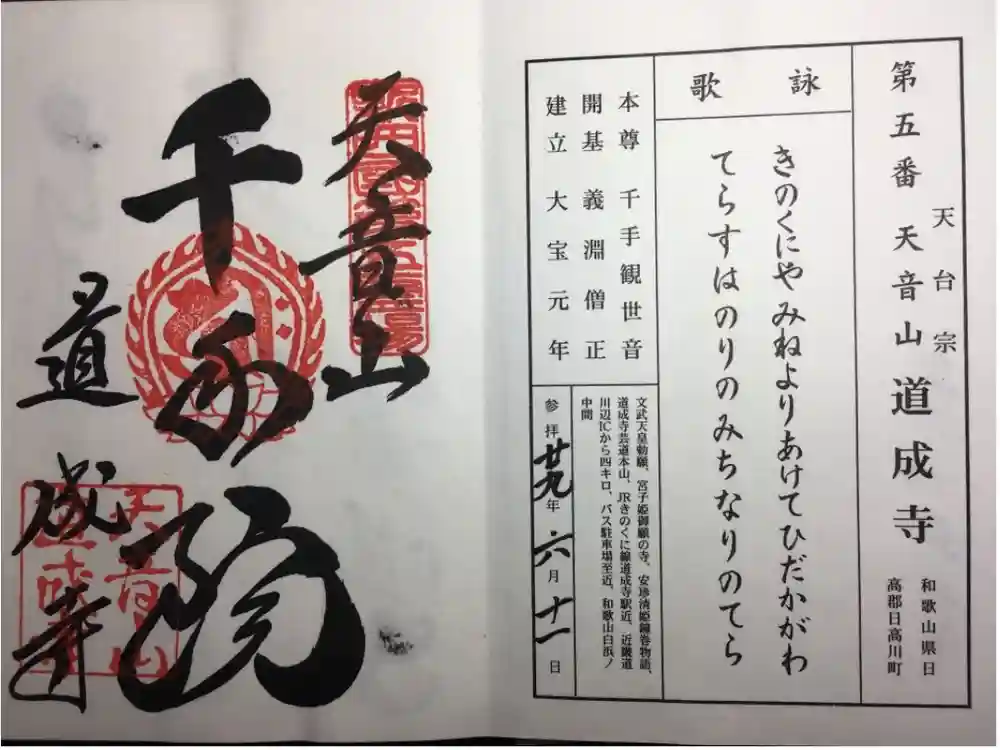 天台宗
第五番 天音山 道成寺
和歌山県日
高郡日高川町
詠歌
きのくにや みねよりあけて ひだかがわ
てらすはのりの みちなりのてら
本尊 千手観世音
開基 義淵僧正
建立 大宝元年
文武天皇勅願、宮子姫御願の寺、安珍清姫鐘巻物語、
道成寺芸道本山、JRきのくに線道成寺駅近、近畿道
川辺ICから四キロ、バス駐車場至近、和歌山白浜ノ
中間
参拝 廿九年 六月 十一日
天音山
千手院
道成寺
天音山
道成寺